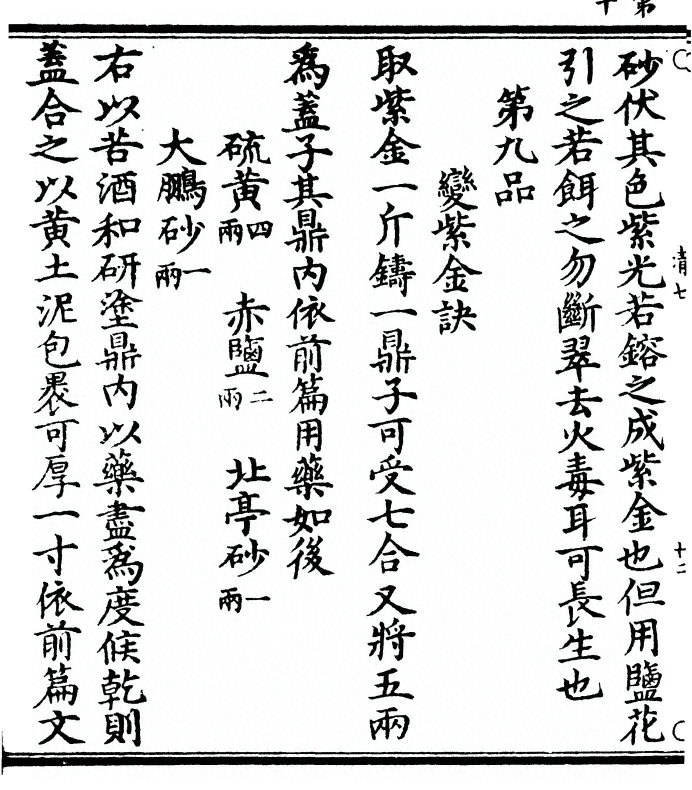 砂伏其色紫光若鎔之成紫金也但用鹽花
引之若餌之勿斷翠去火毒耳可長生也
第九品
變紫金訣
取紫金一斤鑄一鼎子可受七合又將五兩
爲蓋子其鼎內依前篇用藥如後
硫黃四兩 赤鹽二兩 北亭砂一兩
大鵬砂一兩
右以苦酒和研塗鼎內以藥盡爲度候乾則
蓋合之以黃土泥包裹可厚一寸依前篇文
清七
十二